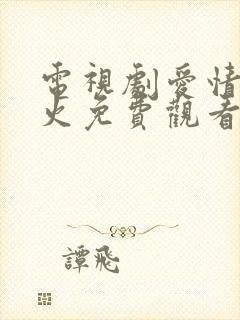 電視劇愛情
火免費觀看
譚飛